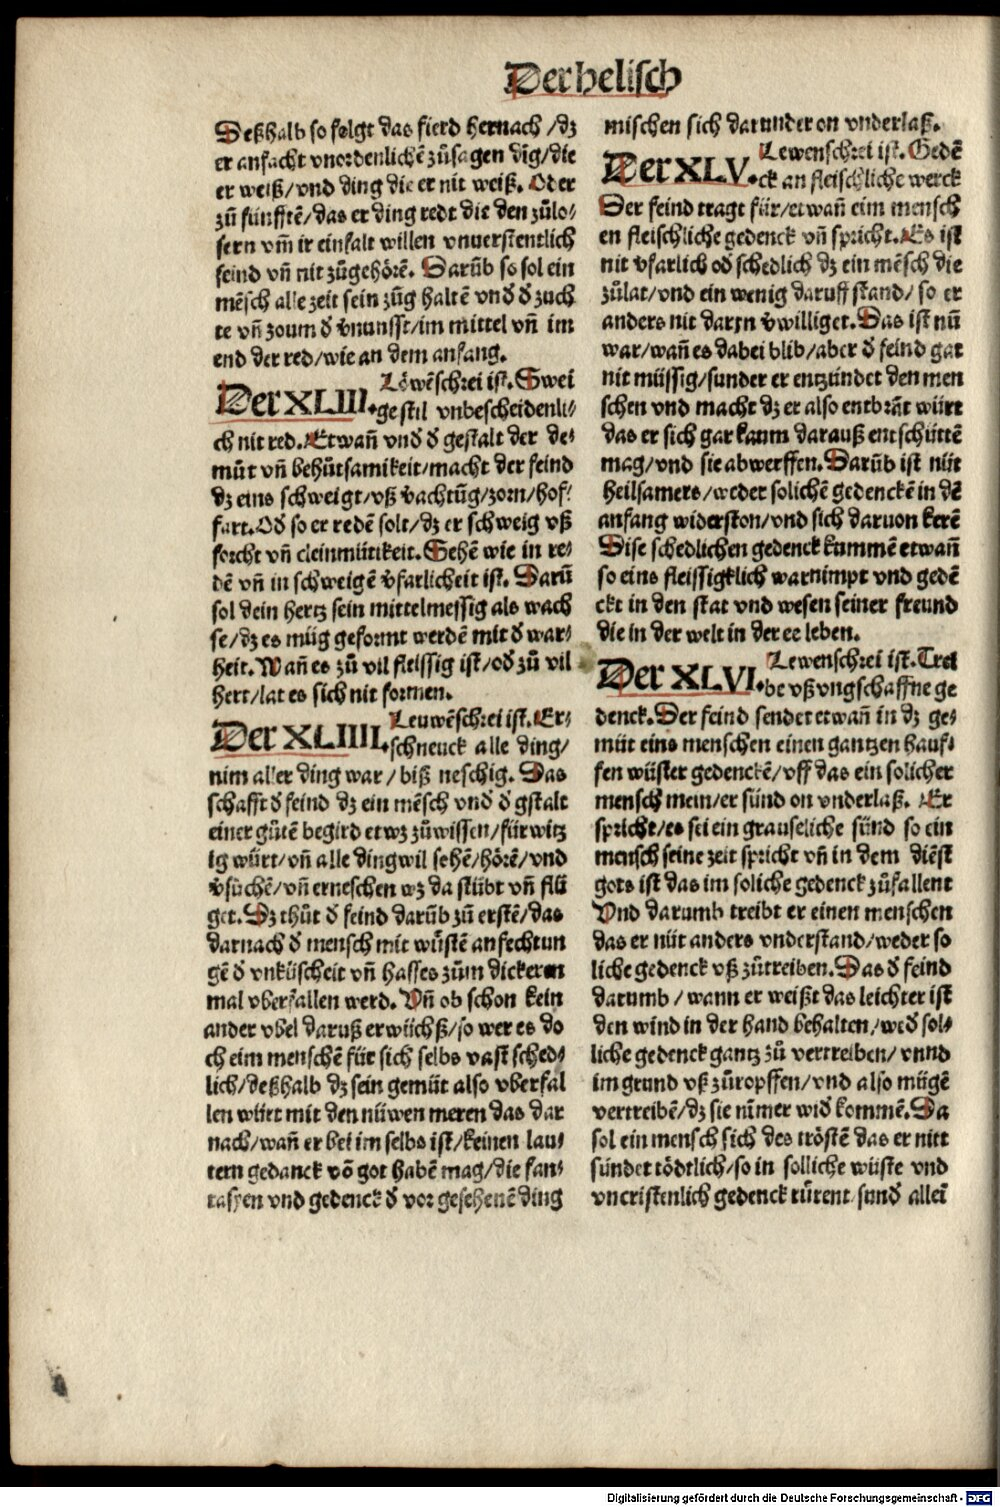 Der helisch
Deßhalb so folgt das fierd hernach /dz
er anfacht vnordenlichē zůsagen dīg/die
er weiß/vnd ding die er nit weiß. Oder
zů fünfftē/das er ding redt die den zůlo⸗
sern vm̄ ir einfalt willen vnuerstentlich
seind vñ nit zůgehörē. Darūb so sol ein
mēsch alle zeit sein zūg haltē vnd đ zuch
te vñ zoum đ v̄nunfft/im mittel vñ im
end der red/wie an dem anfang.
Der XLIII. Löwēschrei ist. Swei
ge stil vnbescheidenli⸗
ch nit red. Etwañ vnd đ gestalt der de⸗
můt vñ behůtsamikeit/macht der feind
dz eins schweigt/vß v̄achtūg/zorn/hof⸗
fart. Od̄ so er redē solt/dz er schweig vß
forcht vñ cleinmütikeit. Sehē wie in re⸗
dē vñ in schweigē v̄farlicheit ist. Darū
sol dein hertz sein mittelmessig als wach
se/dz es müg geformt werdē mit đ war⸗
heit. Wañ es zů vil fleissig ist/od̄ zů vil
hert/lat es sich nit formen.
Der XLIIII. Leuwēschrei ist. Er⸗
schneuck alle ding/
nim aller ding war / biß neschig. Das
schafft đ feind dz ein mēsch vnd đ gstalt
einer gůtē begird etwz zůwissen/fürwitz
ig würt/vñ alle ding wil sehē/hörē/vnd
v̄sůchē/vñ erneschen wz da stübt vñ flü
get. Dz thůt đ feind darūb zů erstē/das
darnach đ mensch mit wůstē anfechtun
gē đ vnküscheit vñ hasses zům dickerm
mal vberfallen werd. Vñ ob schon kein
ander vbel daruß erwüchß/so wer es do
ch eim menschē für sich selbs vast sched⸗
lich/deßhalb dz sein gemüt also vberfal
len würt mit den nüwen meren das dar
nach/wañ er bei im selbs ist/keinen lau⸗
tern gedanck vō got habē mag/die fan⸗
tasyen vnd gedenck đ vor gesehenē ding
mischen sich darunder on vnderlaß.
Der XLV. Lewenschrei ist. Gedē
ck an fleischliche werck
Der feind tragt für/etwañ eim mensch
en fleischliche gedenck vñ spricht. Es ist
nit v̄farlich od̄ schedlich dz ein mēsch die
zůlat/vnd ein wenig daruff stand/ so er
anders nit daryn v̄williget. Das ist nū
war/wañ es dabei blib/aber đ feind gat
nit müssig/sunder er entzündet den men
schen vnd macht dz er also entbrāt würt
das er sich gar kaum darauß entschüttē
mag/vnd sie abwerffen. Darūb ist nüt
heilsamers/weder solichē gedenckē in dē
anfang widerston/vnd sich daruon kerē
Dise schedlichen gedenck kummē etwañ
so eins fleissigklich warnimpt vnd gedē
ckt in den stat vnd wesen seiner freund
die in der welt in der ee leben.
Der XLVI. Lewenschrei ist. Trei
be vß vngschaffne ge
denck. Der feind sendet etwañ in dz ge⸗
müt eins menschen einen gantzen hauf⸗
fen wüster gedenckē/vff das ein solicher
mensch mein/er sünd on vnderlaß. Er
spricht/es sei ein grauseliche sünd so ein
mensch seine zeit spricht vñ in dem diēst
gots ist das im soliche gedenck zůfallent
Vnd darumb treibt er einen menschen
das er nüt anders vnderstand/weder so
liche gedenck vß zůtreiben. Das đ feind
darumb / wann er weißt das leichter ist
den wind in der hand behalten/wed̄ sol⸗
liche gedenck gantz zů vertreiben/ vnnd
im grund vß zůropffen/vnd also mügē
vertreibē/dz sie nimer wid̄ kommē. Da
sol ein mensch sich des tröstē das er nitt
sündet tödtlich/so in solliche wüste vnd
vncristenlich gedenck rürent sund̄ alleī
Digitalisierung gefördert durch die Deutsche Forschungsgemeinschaft - DFG